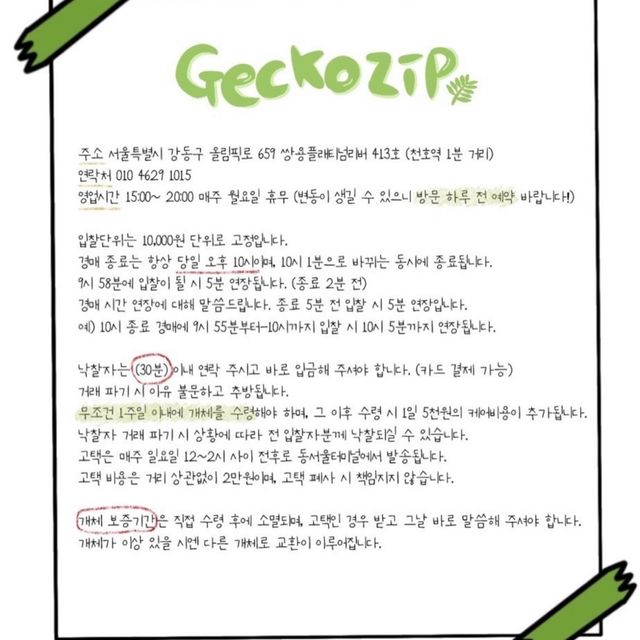 GeckoZIP
주소 서울특별시 강동구 올림픽로 659 쌍용플래티넘리버 413호 (천호역 1분 거리)
연락처 010 4629 1015
영업시간 15:00~ 20:00 매주 월요일 휴무 (변동이 생길 수 있으니 방문 하루 전 예약 바랍니다!)
입찰단위는 10,000원 단위로 고정입니다.
경매 종료는 항상 당일 오후 10시이며, 10시 1분으로 바뀌는 동시에 종료됩니다.
9시 58분에 입찰이 될 시 5분 연장됩니다. (종료 2분 전)
경매 시간 연장에 대해 말씀드립니다. 종료 5분 전 입찰 시 5분 연장입니다.
예) 10시 종료 경매에 9시 55분부터-10시까지 입찰 시 10시 5분까지 연장됩니다.
낙찰자는 (30분) 이내 연락 주시고 바로 입금해 주셔야 합니다. (카드 결제 가능)
거래 파기 시 이유 불문하고 추방됩니다.
무조건 1주일 이내에 개체를 수령해야 하며, 그 이후 수령 시 1일 5천원의 케어비용이 추가됩니다.
낙찰자 거래 파기 시 상황에 따라 전 입찰자분께 낙찰되실 수 있습니다.
고택은 매주 일요일 12~2시 사이 전후로 동서울터미널에서 발송됩니다.
고택 비용은 거리 상관없이 2만원이며, 고택 폐사 시 책임지지 않습니다.
개체 보증기간은 직접 수령 후에 소멸되며, 고택인 경우 받고 그날 바로 말씀해 주셔야 합니다.
개체가 이상 있을 시엔 다른 개체로 교환이 이루어집니다.